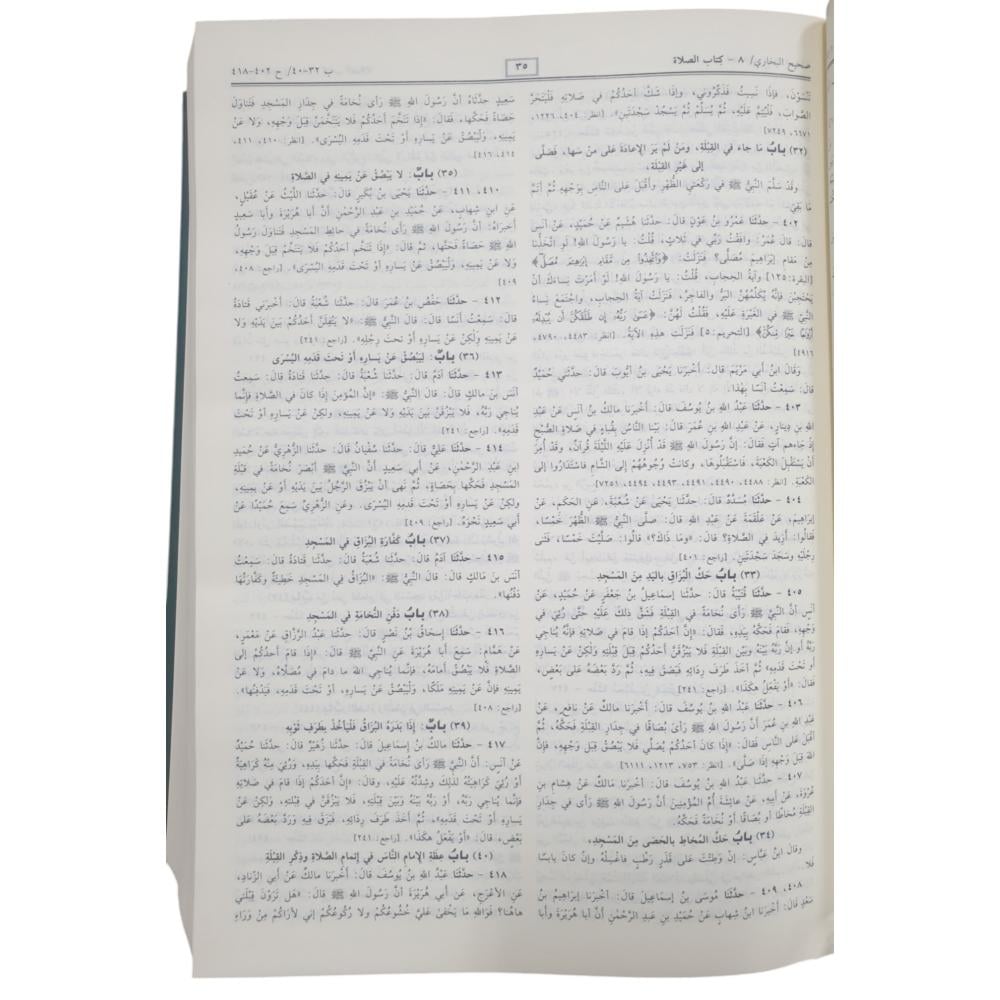 صحيح البخاري/ ٨ - كتاب الصلاة
٣٥
ب ٣٢-٤٠/ ح ٤٠٢-٤١٨
تَنْسَوْنَ، فَإِذَا نَسِيتُ فَذَكِّرُونِي، وإِذَا شَكَّ أَحَدُكُمْ في صَلاتِهِ فَلْيَتَحَرَّ
الصَّوابَ، فَلْيُتِمَّ عَلَيْهِ، ثُمَّ يُسَلِّمْ ثُمَّ يَسْجُدْ سَجْدَتَيْنِ». [انظر: ٤٠٤، ١٢٢٦،
٦٦٧١، ٧٢٤٩]
(٣٢) بابُ مَا جاء في القِبْلَةِ، ومَنْ لَمْ يَرَ الإعادَةَ على من سَها، فَصَلَّى
إلى غَيْرِ القِبْلَة،
وقَد سَلَّمَ النَّبِيُّ ﷺ في رَكْعَتيِ الظُّهْرِ وأَقْبَلَ عَلى النَّاسِ بِوَجْهِهِ ثُمَّ أتَمَّ
مَا بَقِيَ.
٤٠٢ - حدَّثَنَا عَمْرُو بنُ عَوْنٍ قالَ: حدَّثَنَا هُشَيمٌ عَنْ حُمَيْدٍ، عَنْ أنَسٍ
قالَ: قالَ عُمَرُ: وافَقْتُ رَبِّي في ثَلاثٍ، قُلْتُ: يا رَسُولَ اللهِ! لَوِ اتَّخَذْنا
مِنْ مَقامِ إبْرَاهِيمَ مُصَلًّى؟ فَنَزَلَتْ: ﴿وَاتَّخِذُوا مِن مَّقَامِ إِبْرَاهِيمَ مُصَلًّى﴾
[البقرة: ١٢٥] وآيَةُ الحِجابِ، قُلْتُ: يا رَسُولَ اللهِ! لَوْ أَمَرْتَ نِسَاءَكَ أنْ
يَحْتَجِبْنَ فَإِنَّهُ يُكَلِّمُهُنَّ البَرُّ والفاجِرُ، فَنَزَلَتْ آيَةُ الحِجابِ، واجْتَمَعَ نِسَاءُ
النَّبِيِّ ﷺ في الغَيْرَةِ عَلَيْهِ، فَقُلْتُ لَهُنَّ: ﴿عَسَىٰ رَبُّهُ إِن طَلَّقَكُنَّ أَن يُبْدِلَهُ
أَزْوَاجًا خَيْرًا مِّنكُنَّ﴾ [التحريم: ٥] فَنَزَلَتْ هذِهِ الآيَةُ. [انظر: ٤٤٨٣، ٤٧٩٠،
٤٩١٦]
وقالَ ابنُ أبي مَرْيَمَ قال: أخْبَرَنا يَحْيَى بنُ أيُّوبَ قالَ: حدَّثَني حُمَيْدٌ
قال: سَمِعْتُ أنَسًا بِهَذا.
٤٠٣ - حدَّثَنَا عَبْدُ اللهِ بنُ يُوسُفَ قالَ: أخْبَرَنا مالكُ بنُ أنَسٍ عَنْ عَبْدِ
اللهِ بنِ دِينارٍ، عَنْ عَبْدِ اللهِ بنِ عُمَرَ قالَ: بَيْنَا النَّاسُ بقُبَاءٍ في صَلاةِ الصُّبْحِ
إذ جَاءهم آتٍ فَقالَ: إنَّ رَسُولَ اللهِ ﷺ قَدْ أُنْزِلَ عَلَيْهِ اللَّيْلَةَ قُرآنٌ، وقَدْ أُمِرَ
أنْ يَسْتَقْبِلَ الكَعْبَةَ، فَاسْتَقْبِلُوهَا، وكانَتْ وُجُوهُهُمْ إلى الشَّامِ فاسْتَدَارُوا إلى
الكَعْبَةِ. [انظر: ٤٤٨٨، ٤٤٩٠، ٤٤٩١، ٤٤٩٣، ٤٤٩٤، ٧٢٥١]
٤٠٤ - حدَّثَنا مُسَدَّدٌ قالَ: حدَّثَنا يَحْيَى عَنْ شُعْبَةَ، عَنِ الحَكَمِ، عَنْ
إبراهِيمَ، عَنْ عَلْقَمَةَ عَنْ عَبْدِ اللهِ قالَ: صلَّى النَّبيُّ ﷺ الظُّهْرَ خَمْسًا،
فَقَالُوا: أَزِيدَ في الصَّلاةِ؟ قالَ: «ومَا ذَاكَ؟» قالُوا: صَلَّيْتَ خَمْسًا، فَثَنَى
رِجْلَيْهِ وسَجَدَ سَجْدَتَيْنِ. [راجع: ٤٠١]
(٣٣) بابُ حَكِّ البُزَاقِ باليَدِ مِنَ المَسْجِدِ
٤٠٥ - حدَّثَنَا قُتَيْبَةُ قالَ: حدَّثَنا إسماعِيلُ بنُ جَعْفَرٍ عَنْ حُمَيْدٍ، عَنْ
أنَسٍ أنَّ النَّبِيَّ ﷺ رَأى نُخَامَةً في القِبْلَةِ فَشَقَّ ذلكَ عَلَيْهِ حتَّى رُئِيَ في
وَجْهِهِ، فَقامَ فَحَكَّهُ بِيَدِهِ، فَقالَ: «إنَّ أحَدَكُمْ إذَا قامَ في صَلاتِهِ فَإِنَّهُ يُناجِي
رَبَّهُ أو إنَّ رَبَّهُ بَيْنَهُ وبَيْنَ القِبْلَةِ فَلا يَبْزُقَنَّ أحَدُكُمْ قِبَلَ قِبْلَتِهِ ولكِنْ عَنْ يَسَارِهِ
أو تَحْتَ قَدَمِهِ» ثُمَّ أخَذَ طَرَفَ رِدَائِهِ فَبَصَقَ فِيهِ، ثُمَّ رَدَّ بَعْضَهُ عَلى بَعْضٍ،
فَقالَ: «أَوْ يَفْعَلْ هكَذَا». [راجع: ٢٤١]
٤٠٦ - حدَّثَنَا عَبْدُ اللهِ بنُ يُوسُفَ قالَ: أخْبَرَنا مالكٌ عَنْ نافعٍ، عَنْ
عَبْدِ اللهِ بنِ عُمَرَ أنَّ رَسُولَ اللهِ ﷺ رَأىَ بُصَاقًا في جِدَارِ القِبْلَةِ فَحَكَّهُ، ثُمَّ
أقْبَلَ عَلى النَّاسِ فَقالَ: «إذَا كانَ أحَدُكُمْ يُصَلِّي فَلا يَبْصُقْ قِبَلَ وَجْهِهِ، فإنَّ
اللهَ قِبَلَ وَجْهِهِ إذَا صَلَّى». [انظر: ٧٥٣، ١٢١٣، ٦١١١]
٤٠٧ - حدَّثَنَا عَبْدُ اللهِ بنُ يُوسُفَ قالَ: أخْبَرَنا مَالكٌ عَنْ هِشامِ بنِ
عُرْوَةَ، عَنْ أبِيهِ، عَنْ عائِشَةَ أُمِّ المُؤْمِنِينَ أنَّ رَسُولَ اللهِ ﷺ رَأى في جِدَارِ
القِبْلَةِ مُخَاطًا أو بُصَاقًا أوْ نُخَامَةً فَحَكَّهُ.
(٣٤) بابُ حَكِّ المُخَاطِ بالحَصَى مِنَ المَسْجِدِ،
وقالَ ابنُ عَبَّاسٍ: إنْ وَطِئْتَ عَلى قَذَرٍ رَطْبٍ فاغْسِلْهُ وإنْ كانَ يابِسًا
فَلا.
٤٠٨، ٤٠٩ - حدَّثَنَا مُوسَى بنُ إسماعِيلَ قالَ: أخْبَرَنا إبْراهِيمُ بنُ
سَعْدٍ قالَ: أخْبَرَنا ابنُ شِهابٍ عَنْ حُمَيْدِ بنِ عَبدِ الرَّحْمٰنِ أنَّ أبا هُرَيْرَةَ وأبا
سَعِيدٍ حدَّثَاهُ أنَّ رَسُولَ اللهِ ﷺ رَأى نُخَامَةً في جِدَارِ المَسْجِدِ فَتَناوَلَ
حَصَاةً فَحَكَّها، فَقالَ: «إذَا تَنَخَّمَ أحَدُكُمْ فَلا يَتَنَخَّمَنَّ قِبَلَ وَجْهِهِ، ولا عَنْ
يَمِينِهِ، ولْيَبْصُقْ عَنْ يَسارِهِ أوْ تَحْتَ قَدَمِهِ اليُسْرَى». [انظر: ٤١٠، ٤١١،
٤١٤، ٤١٦]
(٣٥) بابٌ: لا يَبْصُقْ عَنْ يَمِينِهِ في الصَّلاةِ
٤١٠، ٤١١ - حدَّثَنَا يَحْيَى بنُ بُكَيْرٍ قالَ: حدَّثَنا اللَّيْثُ عَنْ عُقَيْلٍ،
عَنِ ابنِ شِهابٍ، عَنْ حُمَيْدِ بنِ عَبدِ الرَّحْمٰنِ أنَّ أبا هُرَيْرَةَ وأبا سَعِيدٍ
أخْبَرَاهُ: أنَّ رَسُولَ اللهِ ﷺ رَأى نُخَامَةً في حائِطِ المَسْجِدِ فَتَناوَلَ رَسُولُ
اللهِ ﷺ حَصَاةً فَحَتَّها، ثُمَّ قالَ: «إذَا تَنَخَّم أحَدُكُمْ فَلا يَتَنَخَّمْ قِبَلَ وَجْهِهِ،
ولا عَنْ يَمِينِهِ، ولْيَبْصُقْ عَنْ يَسارِهِ أوْ تَحْتَ قَدَمِهِ اليُسْرَى». [راجع: ٤٠٨،
٤٠٩]
٤١٢ - حدَّثَنَا حَفْصُ بنُ عُمَرَ قالَ: حدَّثَنا شُعْبَةُ قالَ: أخْبَرَني قَتَادَةُ
قالَ: سَمِعْتُ أنَسًا قالَ: قالَ النَّبِيُّ ﷺ: «لا يَتْفِلَنَّ أحَدُكُمْ بَيْنَ يَدَيْهِ ولا
عَنْ يَمِينِهِ ولٰكِنْ عَنْ يَسارِهِ أوْ تحتَ رِجْلِهِ». [راجع: ٢٤١]
(٣٦) بابٌ: لِيَبْصُقْ عَنْ يَسارِهِ أوْ تَحتَ قَدَمِهِ اليُسْرَى
٤١٣ - حدَّثَنَا آدَمُ قالَ: حدَّثَنا شُعْبَةُ قالَ: حدَّثَنا قَتَادَةُ قالَ: سَمِعْتُ
أنَسَ بنَ مالكٍ قالَ: قالَ النَّبِيُّ ﷺ: «إنَّ المُؤْمِنَ إذَا كانَ في الصَّلاةِ فَإِنَّمَا
يُناجِي رَبَّهُ، فَلا يَبْزُقَنَّ بَيْنَ يَدَيْهِ ولا عَنْ يَمِينِهِ، ولكِنْ عَنْ يَسارِهِ أوْ تَحْتَ
قَدَمِهِ». [راجع: ٢٤١]
٤١٤ - حدَّثَنَا عَلِيٌّ قالَ: حدَّثَنا سُفْيَانُ قالَ: حدَّثَنا الزُّهْرِيُّ عَنْ حُمَيدِ
ابنِ عَبْدِ الرَّحْمٰنِ، عَنْ أبي سَعِيدٍ أنَّ النَّبيَّ ﷺ أبْصَرَ نُخَامَةً في قِبْلَةِ
المَسْجِدِ فَحَكَّها بحَصَاةٍ، ثُمَّ نَهَى أنْ يَبْزُقَ الرَّجُلُ بَيْنَ يَدَيْهِ أوْ عَنْ يَمِينِهِ،
ولكِنْ عَنْ يَسارِهِ أوْ تَحْتَ قَدَمِهِ اليُسْرَى. وعَنِ الزُّهْرِيِّ سَمِعَ حُمَيْدًا عَنْ
أبي سَعِيدٍ نَحْوَهُ. [راجع: ٤٠٩]
(٣٧) بابُ كَفَّارَةِ البُزَاقِ في المَسْجِدِ
٤١٥ - حدَّثَنَا آدَمُ قالَ: حدَّثَنَا شُعْبَةُ قالَ: حدَّثَنَا قَتَادَةُ قالَ: سَمِعْتُ
أنَسَ بنَ مَالكٍ قالَ: قالَ النَّبِيُّ ﷺ: «البُزَاقُ في المَسْجِدِ خَطِيئَةٌ وكَفَّارَتُها
دَفْنُها».
(٣٨) بابُ دَفْنِ النُّخَامَةِ في المَسْجِدِ
٤١٦ - حدَّثَنَا إسحَاقُ بْنُ نَصْرٍ قالَ: حدَّثَنا عَبْدُ الرَّزَّاقِ عَنْ مَعْمَرٍ،
عَنْ هَمَّامٍ: سَمِعَ أبا هُرَيْرَةَ عَنِ النَّبِيِّ ﷺ قالَ: «إذَا قامَ أحَدُكُمْ إلى
الصَّلاةِ فَلا يَبْصُقْ أمَامَهُ، فإنَّما يُناجِي اللهَ ما دَامَ في مُصَلَّاهُ، ولا عَنْ
يَمِينِهِ فإنَّ عَنْ يَمِينِهِ مَلَكًا، ولْيَبْصُقْ عَنْ يَسارِهِ، أوْ تَحْتَ قَدَمِهِ، فَيَدْفِنُها».
[راجع: ٤٠٨]
(٣٩) بابٌ: إذَا بَدَرَهُ البُزَاقُ فَلْيَأْخُذْ بِطَرَفِ ثَوْبِهِ
٤١٧ - حدَّثَنَا مالكُ بنُ إسماعِيلَ قالَ: حدَّثَنا زُهَيْرٌ قالَ: حدَّثَنا حُمَيْدٌ
عَنْ أنَسٍ: أنَّ النَّبيَّ ﷺ رَأى نُخَامَةً في القِبْلَةِ فَحَكَّها بِيَدِهِ، ورُئِيَ مِنْهُ كَرَاهِيَةٌ
أوْ رُئِيَ كَرَاهِيَتُهُ لِذَلِكَ وشِدَّتُهُ عَلَيْهِ، وقالَ: «إنَّ أحَدَكُمْ إذَا قامَ في صَلاتِهِ
فإنَّمَا يُناجِي رَبَّهُ، أوْ رَبُّهُ بَيْنَهُ وبَيْنَ قِبْلَتِهِ، فَلا يَبْزُقَنَّ في قِبْلتِهِ، ولكِنْ عَنْ
يَسارِهِ أوْ تَحْتَ قَدَمِهِ»، ثُمَّ أخَذَ طَرَفَ رِدَائِهِ، فَبَزَقَ فِيهِ وَرَدَّ بَعْضَهُ عَلى
بَعْضٍ، قالَ: «أَوْ يَفْعَلُ هكَذَا». [راجع: ٢٤١]
(٤٠) بابُ عِظَةِ الإمامِ النَّاسَ في إتمامِ الصَّلاةِ وذِكْرِ القِبْلَةِ
٤١٨ - حدَّثَنَا عَبْدُ اللهِ بنُ يُوسُفَ قالَ: أخْبَرَنا مالكٌ عَنْ أبي الزِّنادِ،
عَنِ الأعْرَجِ، عن أبي هُرَيْرَةَ أنَّ رَسُولَ اللهِ ﷺ قالَ: «هَلْ تَرَوْنَ قِبْلَتي
هاهُنا؟ فَوَاللهِ مَا يَخْفَىٰ عَليَّ خُشُوعُكُمْ ولا رُكُوعُكُمْ إني لأراكُمْ مِنْ وَرَاءِ